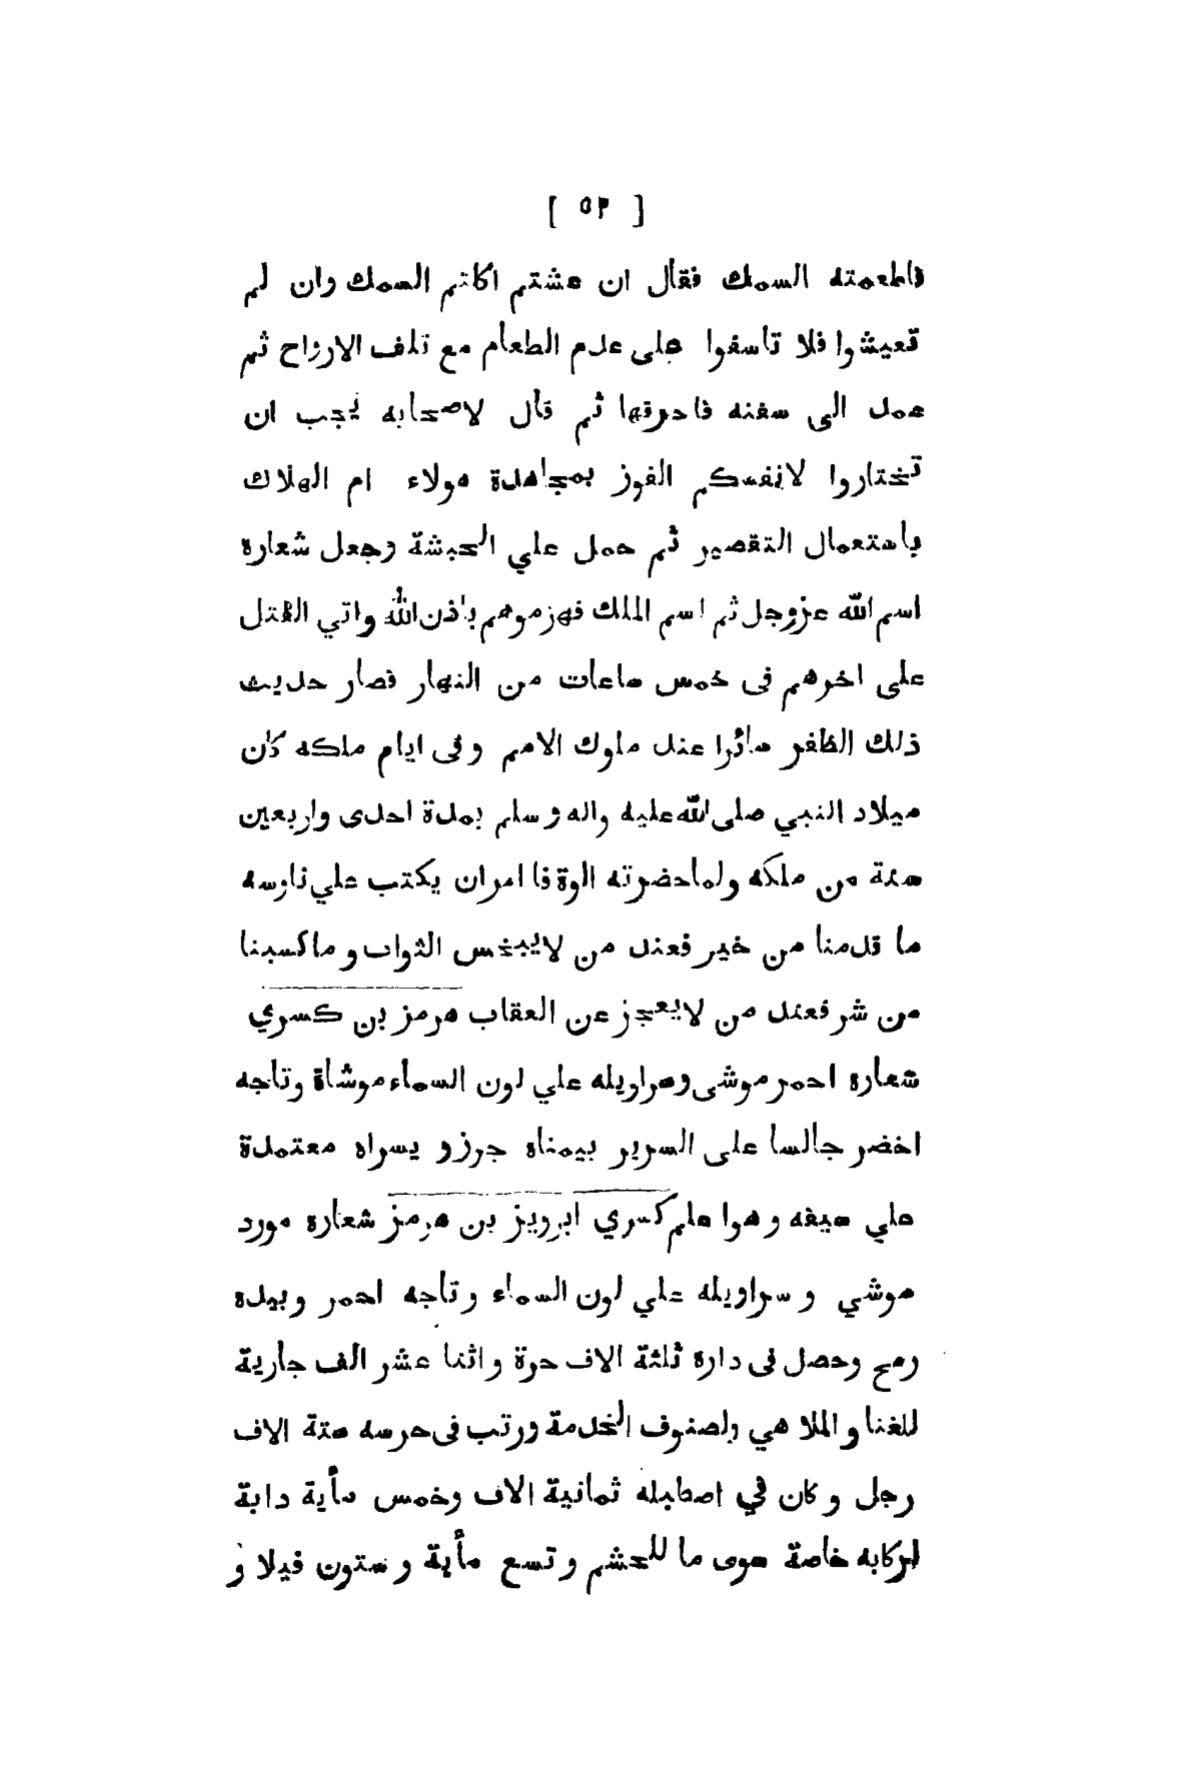 [ ٥٣ ]
فاطعمته السمك فقال ان عشتم اكلتم السمك وان لم
تعيشوا فلا تاسفوا على عدم الطعام مع تلف الارواح ثم
عمد الى سفنه فاحرقها ثم قال لاصحابه يجب ان
تختاروا لانفسكم الفوز بمجاهدة هولاء ام الهلاك
باستعمال التقصير ثم حمل علي الحبشة وجعل شعاره
اسم الله عزوجل ثم اسم الملك فهزموهم باذن الله واتي القتل
على اخرهم فى خمس ساعات من النهار فصار حديث
ذلك الظفر سائرا عند ملوك الامم وفى ايام ملكه كان
ميلاد النبي صلى الله عليه واله وسلم بمدة احدى واربعين
سنة من ملكه ولما حضرته الوفاة امر ان يكتب علي ناوسه
ما قدمنا من خير فعند من لايبخس الثواب و ما كسبنا
من شر فعند من لايعجز عن العقاب هرمز بن كسري
شعاره احمر موشى وسراويله علي لون السماء موشاة وتاجه
اخضر جالسا على السرير بيمناه جرز و يسراه معتمدة
علي سيفه و هوا علم كسري ابرويز بن هرمز شعاره مورد
موشي و سراويله علي لون السماء و تاجه احمر و بيده
رمح وحصل فى داره ثلثة الاف حرة و اثنا عشر الف جارية
للغنا و الملاهي ولصنوف الخدمة ورتب فى حرسه ستة الاف
رجل و كان في اصطبله ثمانية الاف وخمس مأية دابة
لركابه خاصة سوى ما للحشم و تسع مأية و ستون فيلا و